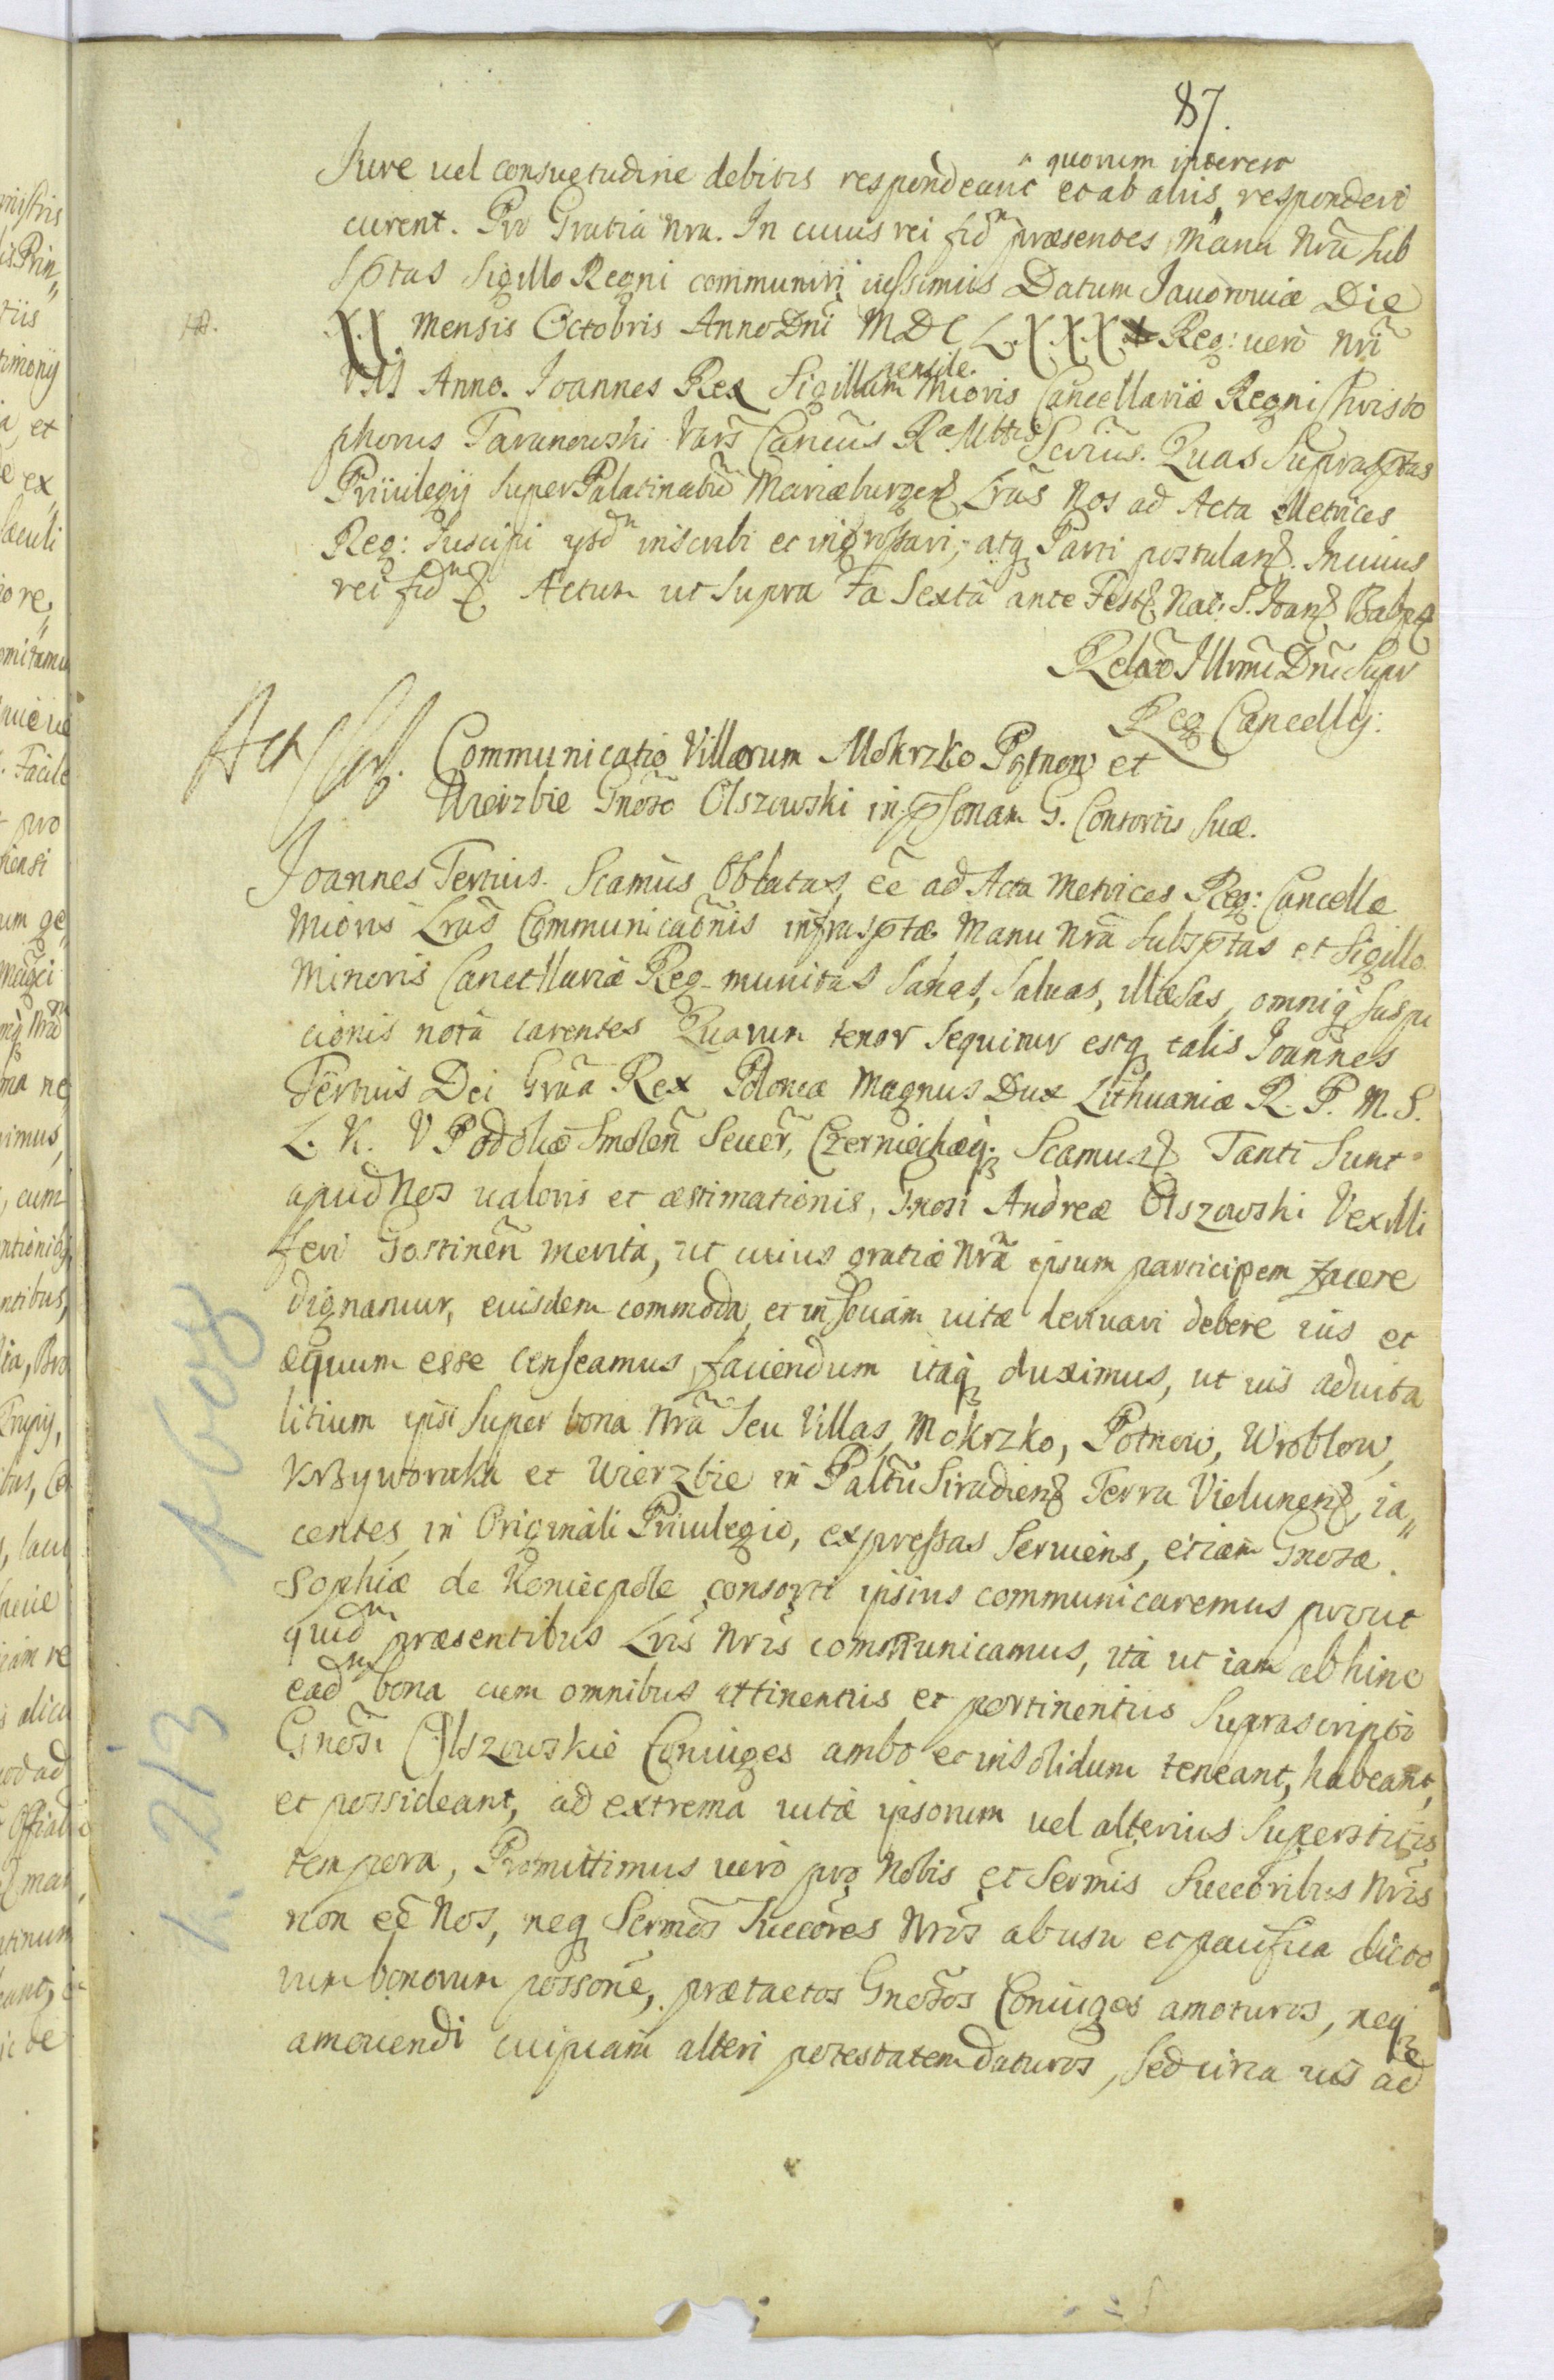 87.
quorum interest
Jure uel consuetudine debitis respondeant et ab alijs, responderi
curent. Pro Gratia nra. In cuius rei fidm præsentes Manu Nrã Sub
Sptas Sigillo Regni communiri iussimus Datum Jauoroviæ Die
XX mensis Octobris Anno Dni MDC LXXX Reg: vero Nri
VII Anno. Joannes Rex Sigillum pensile Mioris Cancellariæ Regni Christo
phorus Taranowski Vars Cancus Ræ Mttis Scrius. Quas Suprasptas
Priuilegij Super Palatinatũ Mariæburgen Lrãs Nos ad Acta Metrices
Reg: Suscipi ysdm inscribi et ingrossari, atq Parti postulan. In cuius
rei fidm Actum ut Supra Fa Sexta ante Fest. Nat: S. Joan Bapt
Relãõ Illrmi Dni Supr
Reg Cancellrij:
Communicatio Villarum Mokrzko Pątnow et
Wierzbie Gnõso Olszowski in psonam G. Consortis Suæ.
Joannes Tertius. Scamus Oblatas ẽẽ ad Acta Metrices Reg: Cancellæ
Mioris Lrãs Communicaõnis infrasptæ Manu Nrã Subsptas et Sigillo
Minoris Cancellariæ Reg. munitas Sanas, Saluas, illæsas, omniq Suspi
cionis nota carentes Quarum tenor Sequitur estq talis Joannes
Tertius Dei Grãa Rex Poloniæ Magnus Dux Lithuaniæ R. P. M. S.
L. K. V Podoliæ Smolen Seuer, Czerniechæq. Scamus Tanti Sunt
apud Nos ualoris et æstimationis, Gnosi Andreæ Olszowski Vexilli
feri Gostinen merita, ut cuius gratiæ Nrã ipsum participem facere
dignamur, euisdem commoda et in sociam uitæ deriuari debere ius et
æquum esse censeamus, faciendum itaq duximus, ut ius aduita
litium ipsi Super bona Nrã Seu Villas, Mokrzko, Potnow, Wroblow,
Krzyworzeka et Wierzbie in Paltũ Siradien Terra Vielunen, ia„
centes in Originali Priuilegio, expressas Seruiens, etiam Gnosæ
Sophiæ de Koniecpole consorti ipsius communicaremus prout
quidm præsentibus Lris Nris communicamus, ita ut iam abhinc
eadm bona cum omnibus attinentiis et pertinentiis Suprascripti
Gnõsi Olszowskie Coniuges ambo et in solidum teneant, habeant,
et possideant, ad extrema uitæ ipsorum uel alterius Superstitis
tempora, Promittimus uero pro Nobis et Sermis Succoribus Nris
non ẽẽ Nos, neq Sermos Succores Nros ab usu et paufica dicto
rum bonorum possone, prætactos Gnosos Coniuges amoturos, neq
amouendi cuipiam alteri potestatem daturos, sed circa ius ad